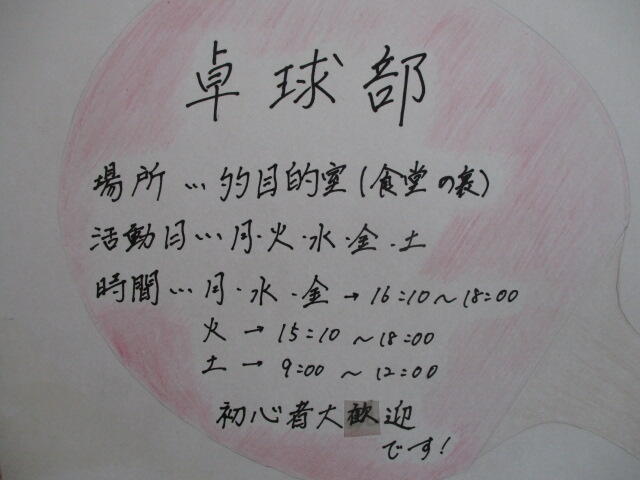 卓球部
場所…多目的室(食堂の裏)
活動日…月・火・水・金・土
時間…月・水・金→16:10～18:00
火→15:10～18:00
土→9:00～12:00
初心者大歓迎
です!